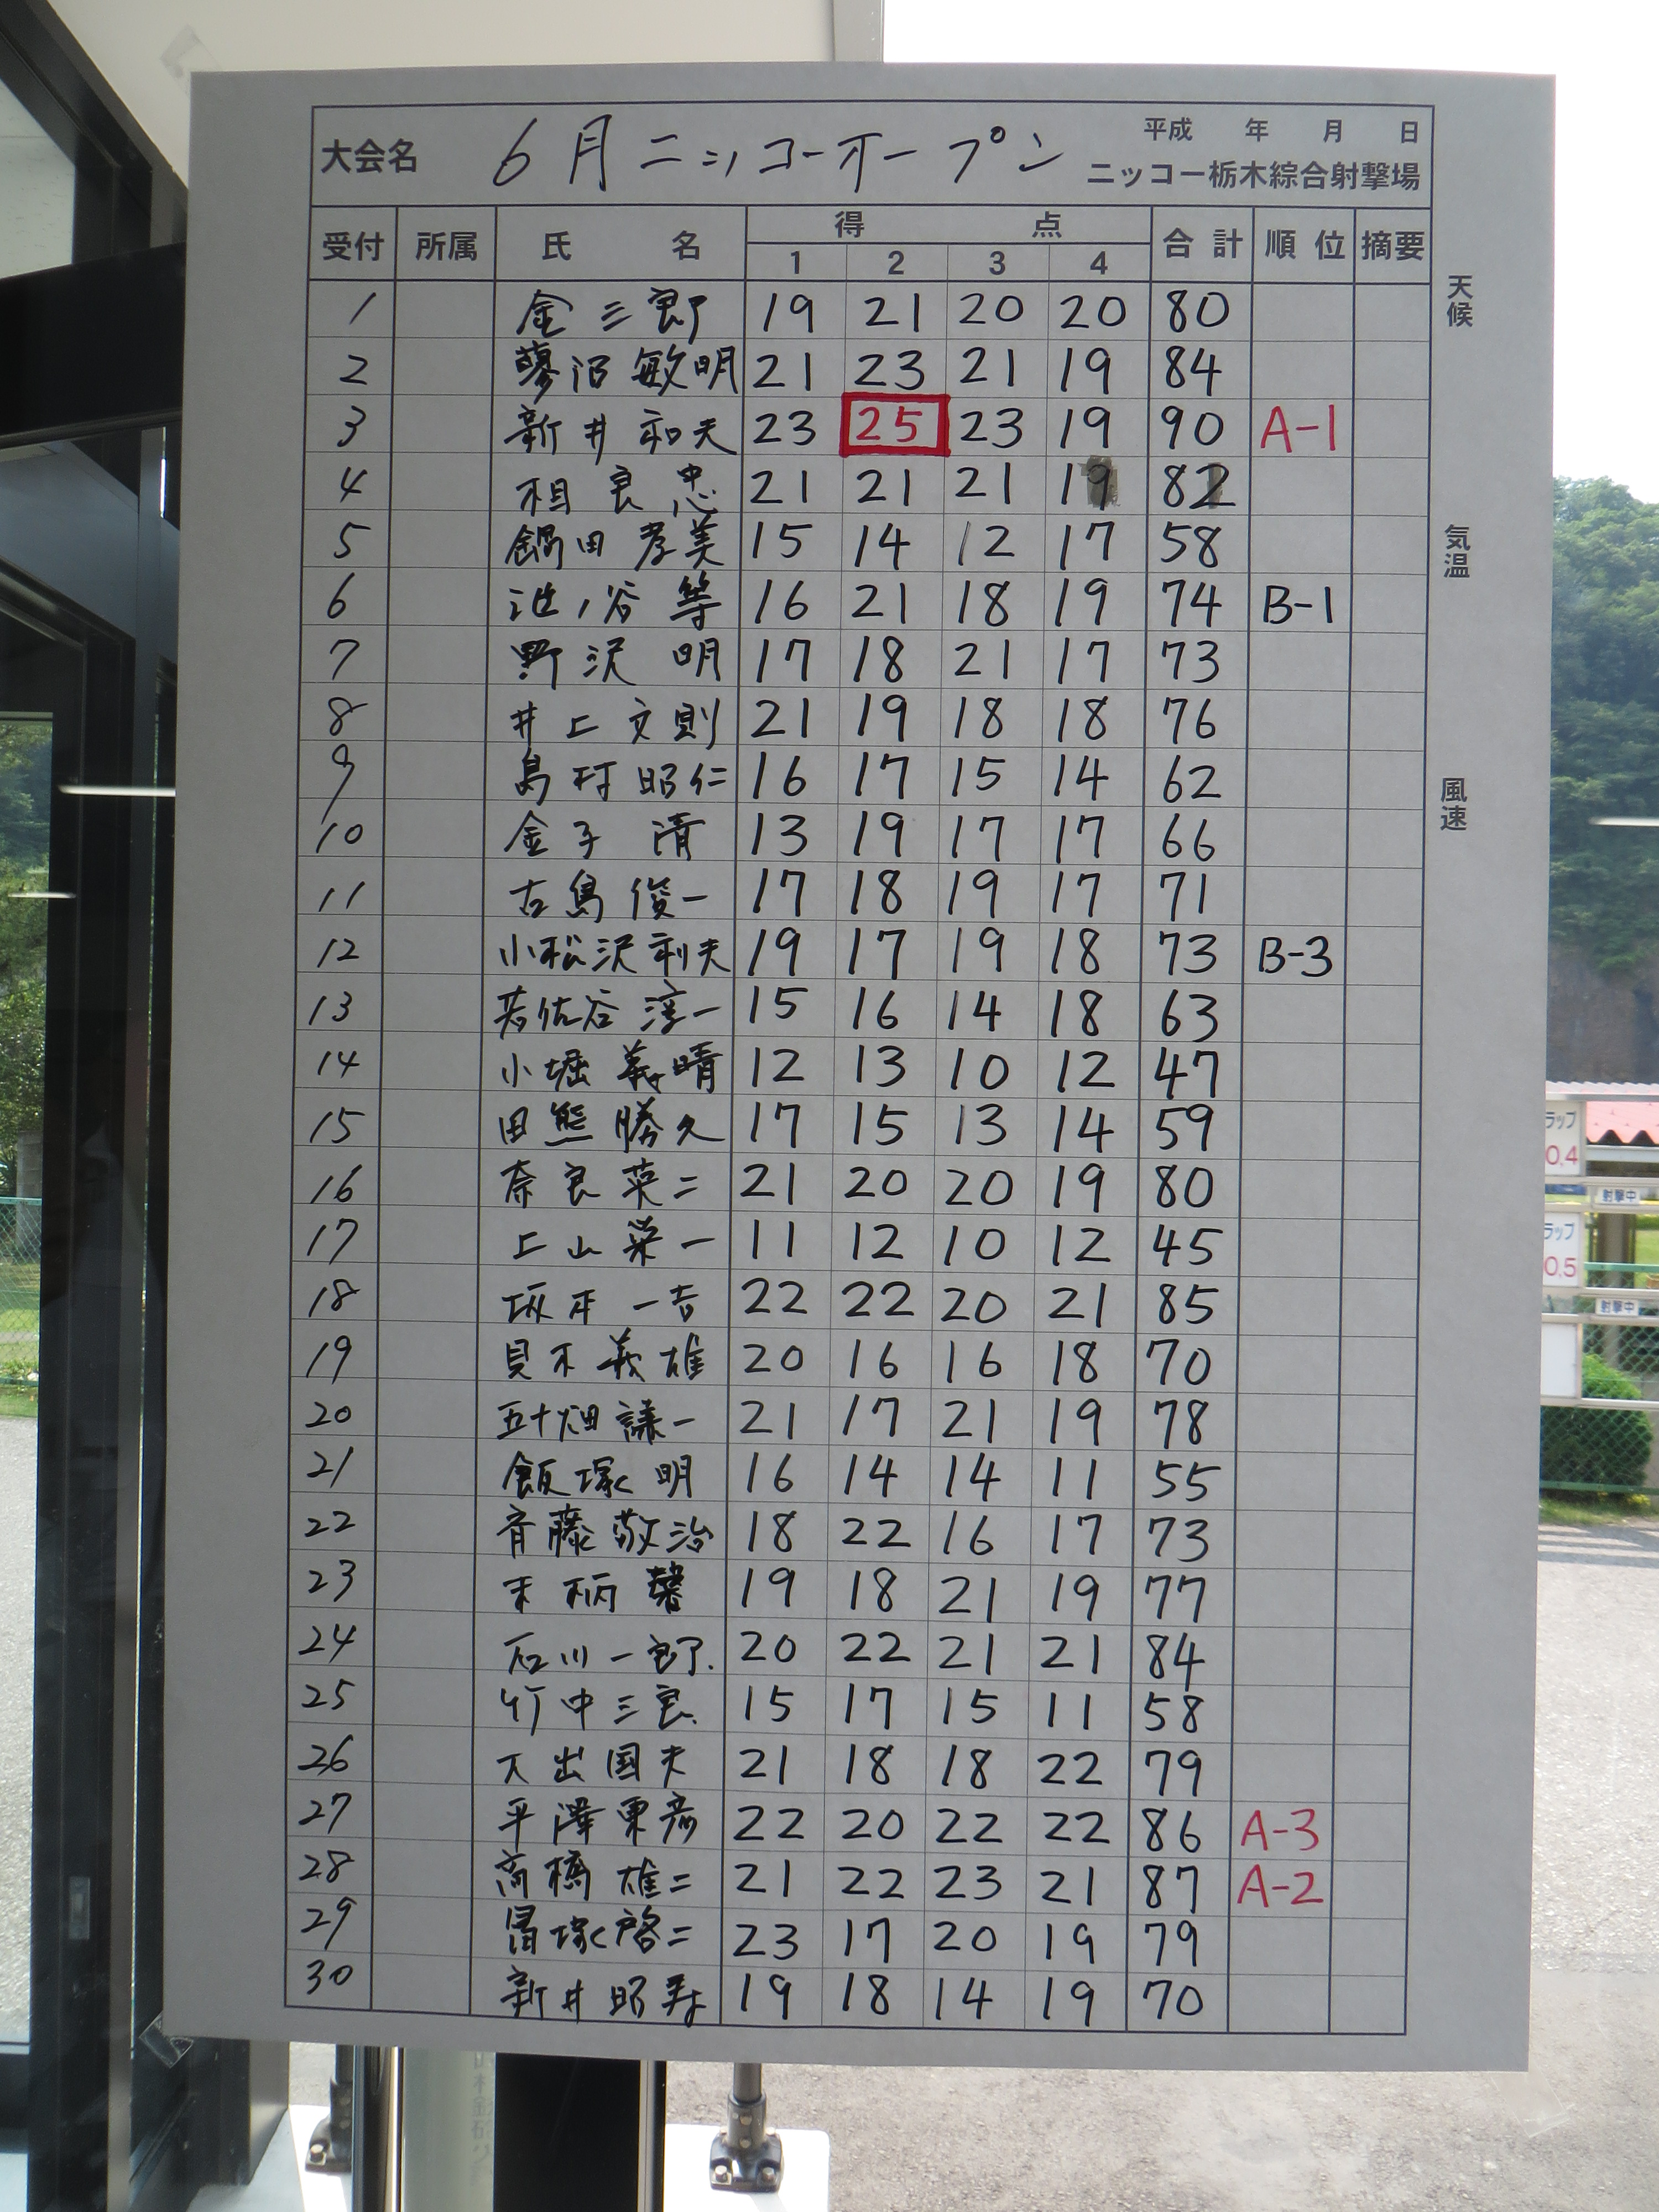 大会名 6月ニッコーオープン 平成 年 月 日
ニッコー栃木綜合射撃場
受付 所属 氏 名 得 点 合計 順位 摘要
1 2 3 4
1 金三郎 19 21 20 20 80
2 蓼沼敏明 21 23 21 19 84
3 新井和夫 23 25 23 19 90 A-1
4 相良忠 21 21 21 19 82
5 鍋田孝美 15 14 12 17 58
6 池ノ谷等 16 21 18 19 74 B-1
7 野沢明 17 18 21 17 73
8 井上文則 21 19 18 18 76
9 島村昭仁 16 17 15 14 62
10 金子清 13 19 17 17 66
11 古島俊一 17 18 19 17 71
12 小松沢利夫 19 17 19 18 73 B-3
13 若佐谷淳一 15 16 14 18 63
14 小堀義晴 12 13 10 12 47
15 田熊勝久 17 15 13 14 59
16 奈良英二 21 20 20 19 80
17 上山栄一 11 12 10 12 45
18 坂本一吉 22 22 20 21 85
19 貝木義雄 20 16 16 18 70
20 五十畑謙一 21 17 21 19 78
21 飯塚明 16 14 14 11 55
22 斉藤敬治 18 22 16 17 73
23 柄 19 18 21 19 77
24 石川一郎 20 22 21 21 84
25 竹中三良 15 17 15 11 58
26 大出国夫 21 18 18 22 79
27 平澤東彦 22 20 22 22 86 A-3
28 高橋雄二 21 22 23 21 87 A-2
29 塚啓二 23 17 20 19 79
30 新井昭寿 19 18 14 19 70
天候
気温
風速
ラップ
0,4
射撃中
ラップ
0,5
射撃中